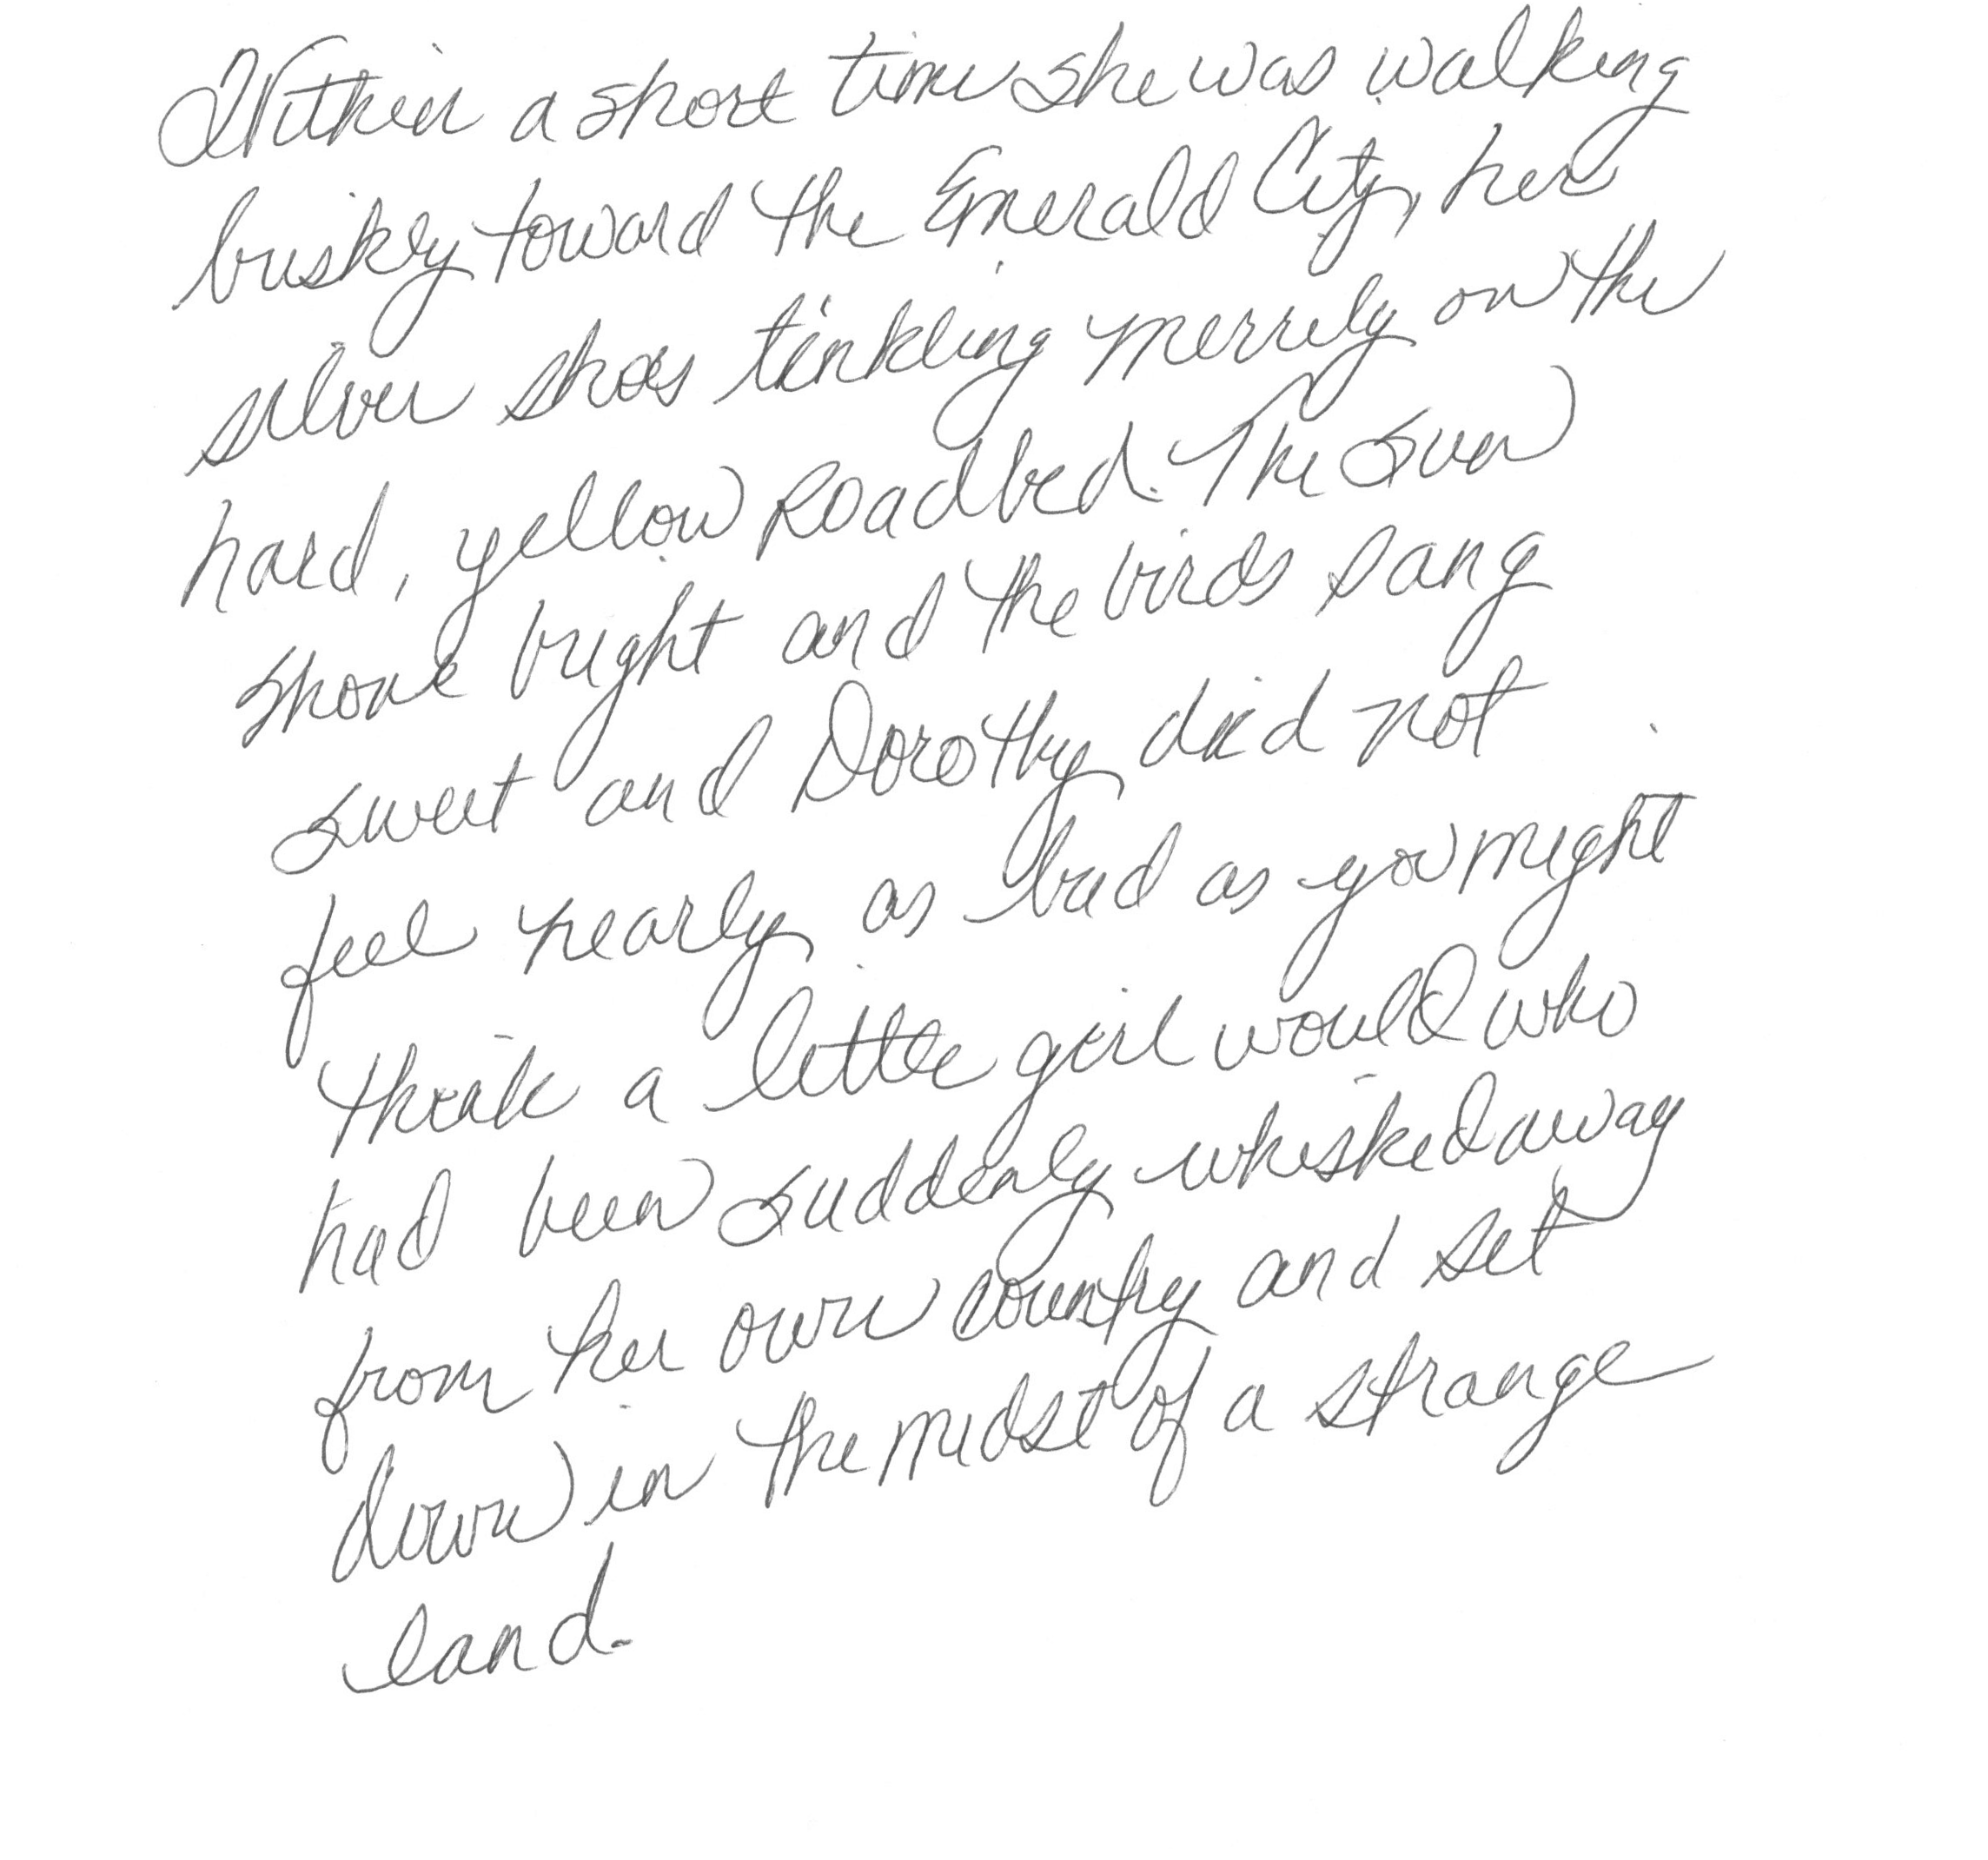 Within a short time she was walking
briskly toward the Emerald City, her
silver shoes tinkling merrily on the
hard, yellow Roadbed. The sun
shone bright and the birds sang
sweet and Dorothy did not
feel nearly as bad as you might
think a little girl would who
had been suddenly whisked away
from her own country and set
down in the midst of a strange
land.